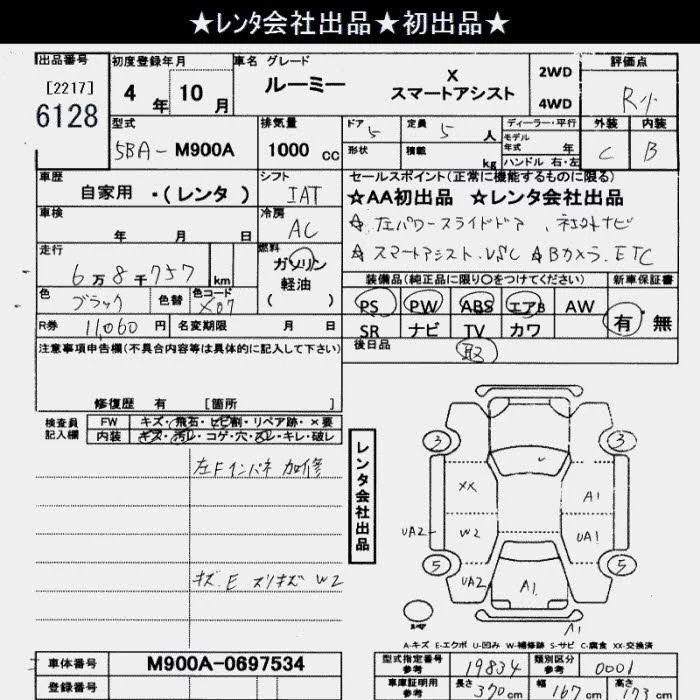 ★レンタ会社出品★初出品★
出品番号
[2217]
6128
初度登録年月
4 年 10 月
車名 グレード
ルーミー X スマートアシスト
2WD
4WD
評価点
R小
型式
5BA- M900A
排気量
1000 cc
ドア 5
形状
定員 5 人
積載 kg
ディーラー・平行
モデル年式 年
ハンドル 右・左
外装 C
内装 B
車歴
自家用 ・(レンタ)
シフト
IAT
セールスポイント(正常に機能するものに限る)
☆AA初出品 ☆レンタ会社出品
☆ 左パワースライドドア、社外ナビ
☆ スマートアシスト、VSC ☆Bカメラ、ETC
車検
年 月 日
冷房
AC
走行
6万8千757 km
燃料
ガソリン
軽油
( )
装備品(純正品に限り○をつけてください)
新車保証書
PS PW ABS エアB AW
SR ナビ TV カワ
有・無
色
ブラック
色替
色コード
X07
R券 11,060 円
名変期限 月 日
後日品
取
注意事項申告欄(不具合内容等は具体的に記入して下さい)
修復歴 有 [箇所
検査員記入欄
FW キズ・飛石・ヒビ割・リペア跡・×要
内装 キズ・汚レ・コゲ・穴・スレ・キレ・破レ
左Fインパネ 加修
キズ、E スリキズ W2
レンタ会社出品
3
3
XX
A1
UA2
W2
UA1
5
5
UA2
A1
A1
A-キズ E-エクボ U-凹み W-補修跡 S-サビ C-腐食 XX-交換済
車体番号
M900A-0697534
登録番号
型式指定番号
参考
19834
類別区分
参考
0001
車庫証明用
参考
長さ 370 cm
幅 167 cm
高さ 173 cm